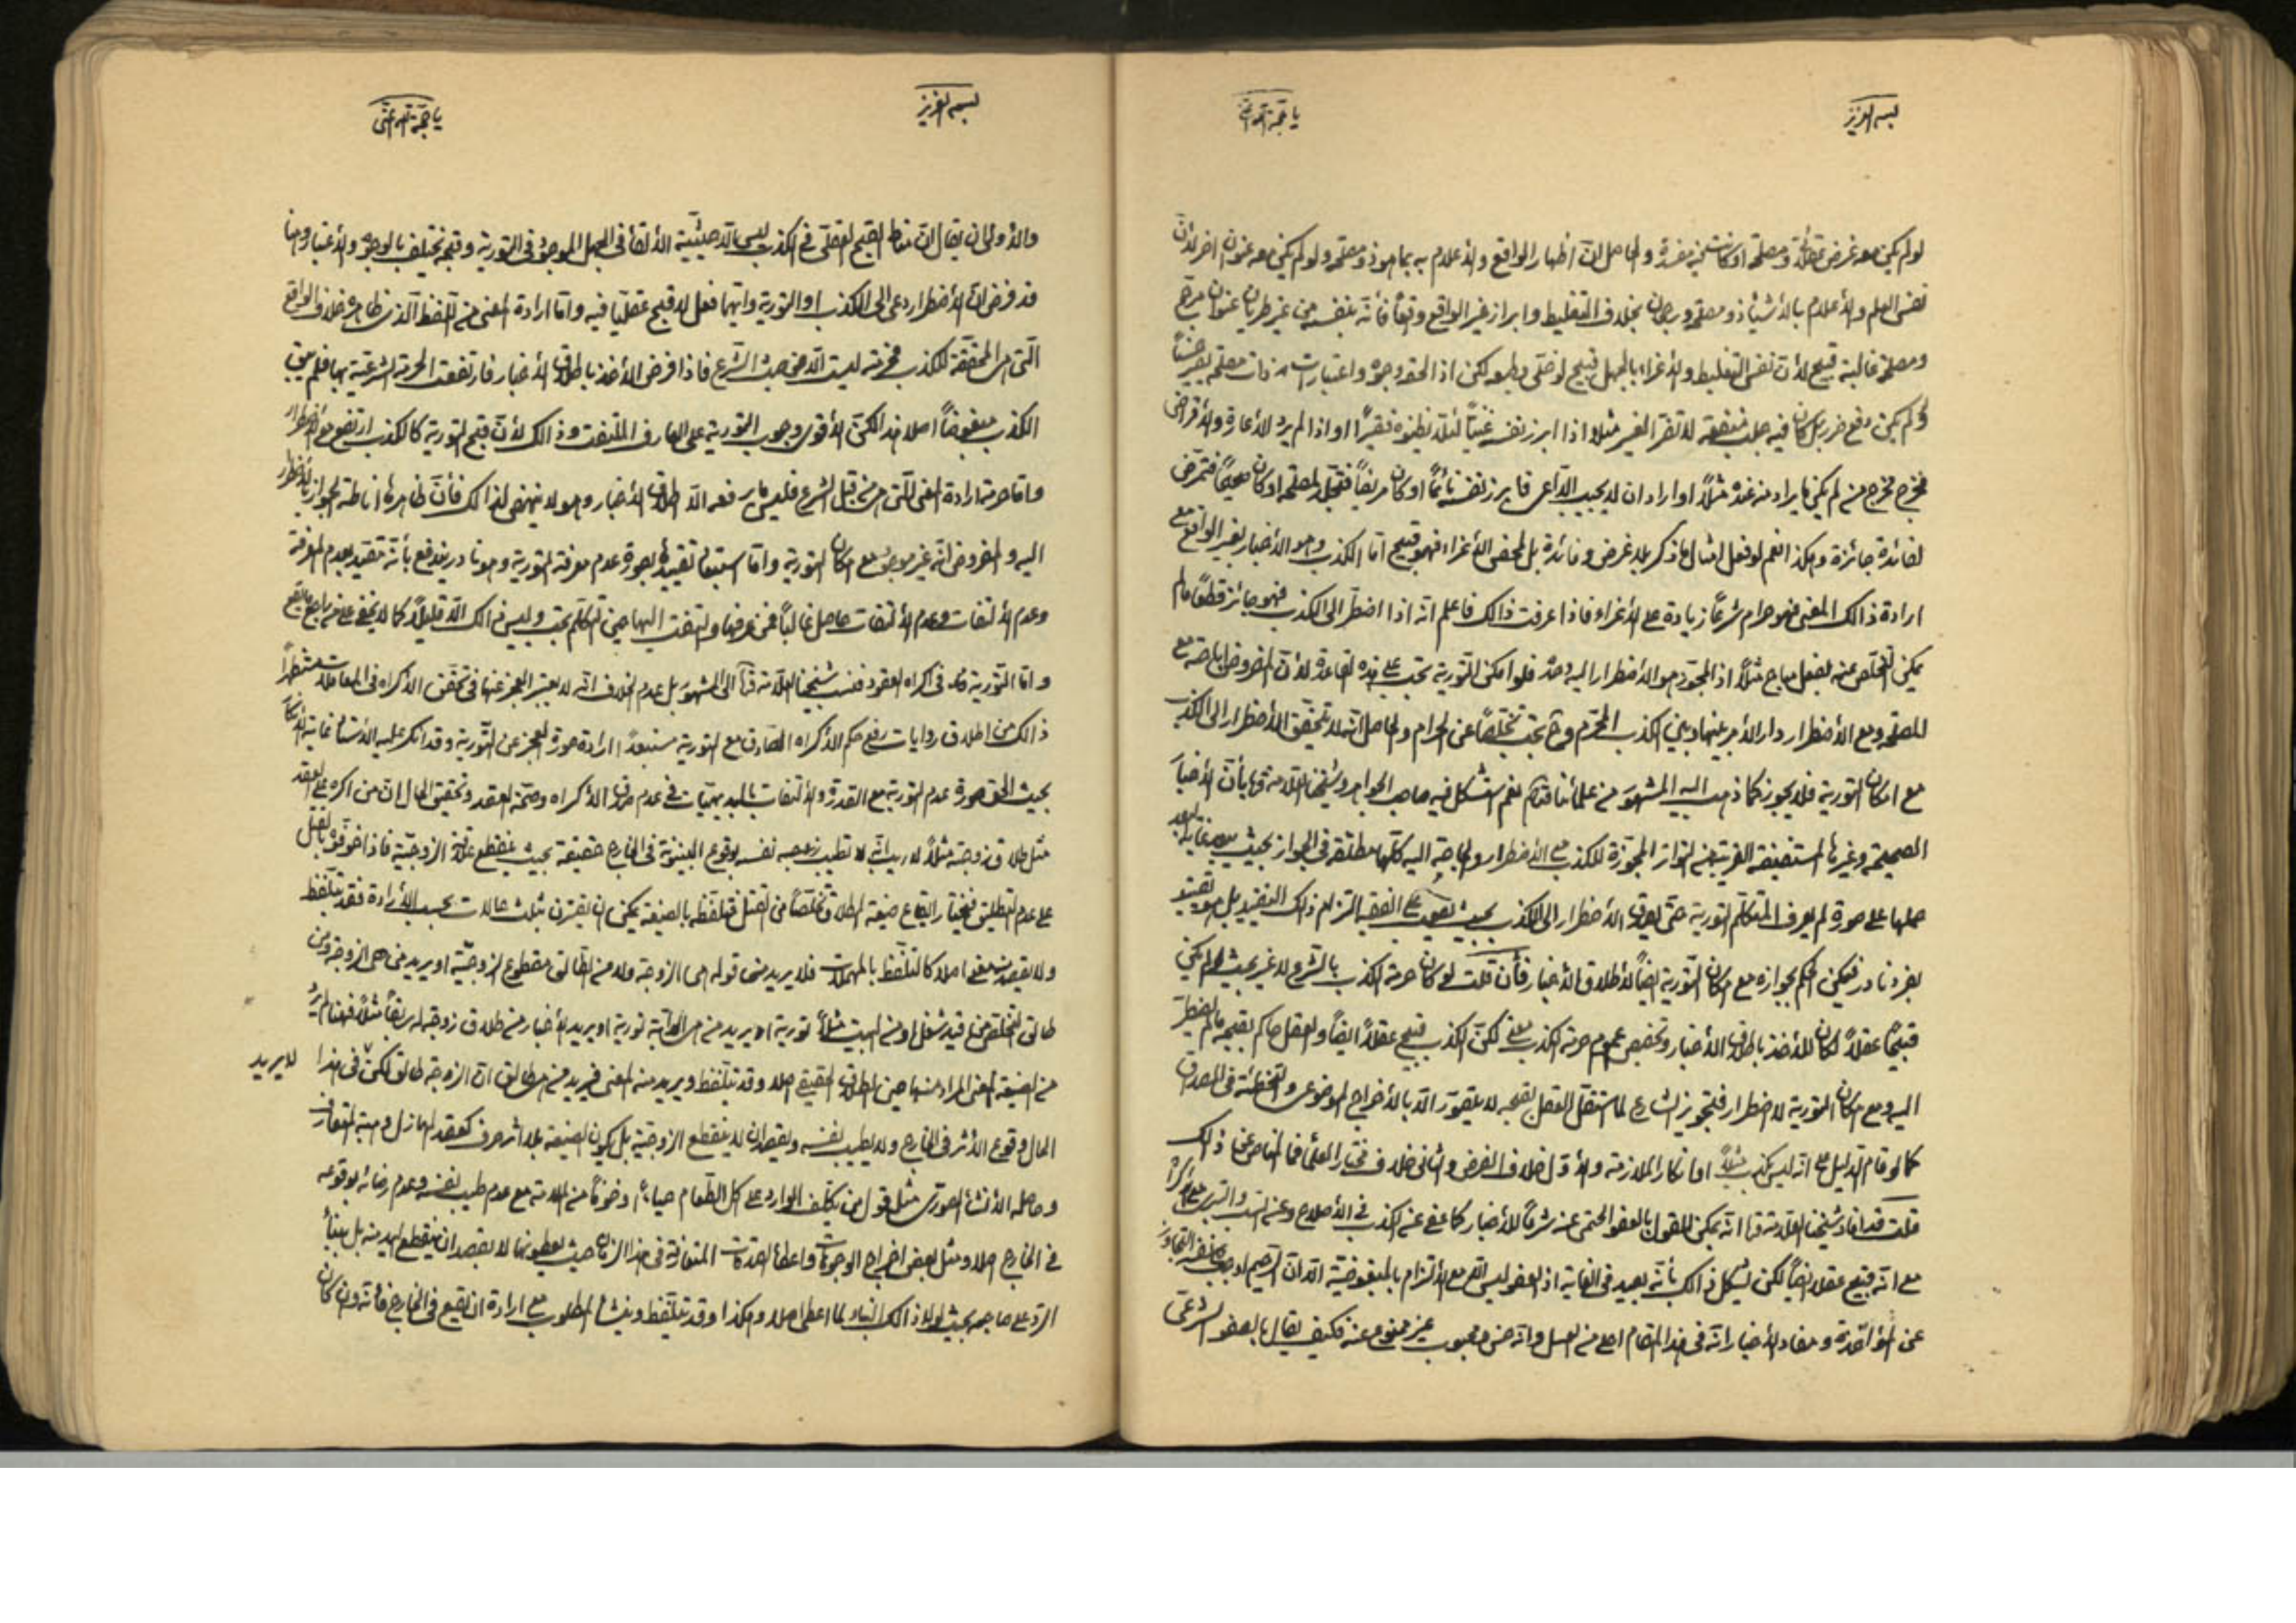 بسم العزيز
يا حجة الله اغثنى
لو لم يكن معه غرض عقلائى ومصلحة او كانت فيه مفسدة والحاصل ان اظهار الواقع والاعلام به بما هو ذو مصلحة ولو لم يكن معه عنوان اخر لان
نفس العلم والاعلام بالاشياء ذو مصلحة ورجحان بخلاف التغليط وابراز غير الواقع وقعاً فانه بنفسه من غير طريان عنوان مرجح
ومصلحة غالبة قبيح لان نفس التغليط والاغراء بالجهل قبيح لو خلى وطبعه لكن اذا لحقه وجوه واعتبارات ذات مصلحة يصير حسناً
ولم يكن دفع ضرر بل كان فيه جلب منفعة لا تضر الغير مثلا اذا ابرز نفسه غنياً لئلا يظنوه فقيراً او اذا لم يرد الاعارة والاقراض
فخرج مخرج من لم يكن ما يراد منه عنده مثلاً او اراد ان لا يجيب الداعى فابرز نفسه نائماً او كان مريضاً فتجلد لمصلحة او كان صحيحاً فتمرض
لفائدة جائزة وهكذا نعم لو فعل امثال ما ذكر بلا غرض وفائدة بل لمحض الاغراء فهو قبيح اما الكذب وهو الاخبار بغير الواقع مع
ارادة ذالك المعنى فهو حرام شرعاً زيادة على الاغراء فاذا عرفت ذالك فاعلم انه اذا اضطر الى الكذب فهو جائز قطعاً ما لم
يمكن التخلص عنه بفعل مباح مثلاً اذ المجوز هو الاضطرار اليه وحده فلو امكن التورية تجب على هذه القاعدة لان المفروض اباحته مع
المصلحة ومع الاضطرار دار الامر بينها وبين الكذب المحرم وح تجب تخلصاً عن الحرام والحاصل انه لا يتحقق الاضطرار الى الكذب
مع امكان التورية فلا يجوز كما ذهب اليه المشهور من علمائنا نعم استشكل فيه صاحب الجواهر وشيخنا العلامة بان الاخبار
الصحيحة وغيرها المستفيضة القريبة من التواتر المجوزة للكذب مع الاضطرار والحاجة اليه كلها مطلقة فى الجواز بحيث يبعد غاية البعد
حملها على صورة لم يعرف المتكلم التورية حتى يصدق الاضطرار الى الكذب بحيث يصعب على الفقيه التزام ذلك التقييد بل هو تقييد
بفرد نادر فيمكن الحكم بجوازه مع امكان التورية ايضاً لاطلاق الاخبار فان قلت لو كان حرمة الكذب بالشرع لا غير بحيث لم يكن
قبيحاً عقلاً لكان للاخذ باطلاق الاخبار وتخصيص عموم حرمة الكذب معنى لكن الكذب قبيح عقلاً ايضاً والعقل حاكم بقبحه ما لم يضطر
اليه ومع امكان التورية لا اضطرار فتجويز الشارع لما استقل العقل بقبحه لا يتصور الا بالاخراج الموضوعى والتخطئة فى المصداق
كما لو قام الدليل على انه ليس بكذب مثلاً او انكار الملازمة والاول خلاف الفرض والثانى خلاف مختار العلماء فما المناص عن ذالك
قلت قد افاد شيخنا العلامة انه يمكن القول بالعفو الحتمى عنه شرعاً للاخبار كما عفى عن الكذب فى الاصلاح
مع انه قبيح عقلا ايضاً لكن يشكل ذالك بانه بعيد فى الغاية اذ العفو ليس الا مع الالتزام بالمبغوضية الا ان الرحيم اوجب
عن المؤاخذة ومفاد الاخبار انه فى هذا المقام احلى من العسل وانه حسن ومحبوب غير ممنوع عنه فكيف يقال بالعفو الشرعى
بسم العزيز
يا حجة الله اغثنى
والاولى ان يقال ان مناط القبح العقلى فى الكذب ليس الا حيثية الالقاء فى الجهل الموجود فى التورية وقبحه يختلف بالوجوه والاعتبار وهنا
قد فرض ان الاضطرار دعى الى الكذب او التورية وايهما فعل لا قبح عقلياً فيه واما ارادة المعنى من اللفظ الذى ظاهره خلاف الواقع
التى هى المحققة للكذب فحرمته ليست الا من حيث الشرع فاذا فرض الاخذ باطلاق الاخبار فارتفعت الحرمة الشرعية بها فلم يبق
الكذب مبغوضاً اصلا هذا لكن الاقوى وجوب التورية على العارف الملتفت وذالك لان قبح التورية كالكذب ارتفع مع الاضطرار
واما حرمة ارادة المعنى التى هى من قبل الشرع فليس ما يرفعه الا اطلاق الاخبار وهو لا ينهض لذالك فان ظاهرها اناطة الجواز بالاضطرار
اليه والمفروض انه غير موجود مع امكان التورية واما استبعاد تقييدها بصورة عدم معرفة التورية وهو نادر يندفع بانه تقييد بعدم المعرفة
وعدم الالتفات وعدم الالتفات حاصل غالباً فمن عرفها والتفت اليها حين التكلم تجب وليس ذالك الا قليلاً كما لا يخفى على من راجع
واما التورية فى اكراه العقود فنسب شيخنا العلامة الى المشهور بل عدم الخلاف انه لا يعتبر العجز عنها فى تحقق الاكراه فى المعاملات مستظهراً
ذالك من اطلاق روايات رفع حكم الاكراه الصادق مع التورية مستبعداً ارادة صورة العجز عن التورية وقد انكر عليه الاستاد غاية الانكار
بحيث الحق صورة عدم التورية مع القدرة والالتفات بالبديهيات فى عدم صدق الاكراه وصحة العقد وتحقيق الحال ان من اكره على العقد
مثل طلاق زوجته مثلاً لا ريب انه لا تطيب نفسه بوقوع البينونة فى الخارج حقيقة بحيث ينقطع علاقة الزوجية فاذا خوفوه بالقتل
على عدم التطليق فيختار ايقاع صيغة الطلاق تخلصاً من القتل فتلفظه بالصيغة يمكن ان يقترن بثلث حالات بحسب الارادة فقد يتلفظ
ولا يقصد منه معنى اصلا كالتلفظ بالمهملات فلا يريد من قوله هى الزوجة ولا من الطالق مقطوع الزوجية او يريد من هى الزوجة ومن
طالق التخلص من قيد شغل او من البيت مثلاً تورية او يريد من هى الدابة تورية او يريد الاخبار من طلاق زوجته سابقاً مثلاً فهنا لم يرد
من الصيغة المعنى المراد منها حين الطلاق الحقيقى اصلا وقد يتلفظ ويريد منه المعنى فيريد من هى طالق ان الزوجة طالق لكن فى هذا لا يريد
الحال وقوع الاثر فى الخارج ولا يطيب نفسه ويقصد ان لا ينقطع الزوجية بل يكون الصيغة بلا اثر صرف كعقد الهازل وهبة المتعارف
وحاصله الانشاء الصورى مثل قول من يكلف الوارد على اكل الطعام حياءً او خوفاً من الملامة مع عدم طيب نفسه وعدم رضائه بوقوعه
فى الخارج اصلا ومثل بعض اخراج الوجوهات واعطاء الصدقات المتعارفة فى هذا الزمان حيث يعطونها لا بقصد ان ينقطع اليد منه بل بناءً
الرد على صاحبه بحيث لولا ذالك البناء لما اعطى اصلا وهكذا وقد يتلفظ وينشأ المطلوب مع ارادة ان يقع فى الخارج فانه وان كان